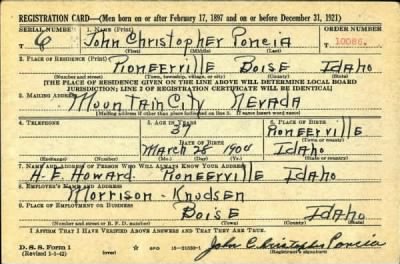 REGISTRATION CARD—(Men born on or after February 17, 1897 and on or before December 31, 1921)
SERIAL NUMBER 1. NAME (Print) ORDER NUMBER
T 6 John Christopher Poncia 10086
(First) (Middle) (Last)
2. PLACE OF RESIDENCE (Print)
Pioneerville Boise Idaho
(Number and street) (Town, township, village, or city) (County) (State)
[THE PLACE OF RESIDENCE GIVEN ON THE LINE ABOVE WILL DETERMINE LOCAL BOARD
JURISDICTION; LINE 2 OF REGISTRATION CERTIFICATE WILL BE IDENTICAL]
3. MAILING ADDRESS
Mountain City Nevada
[Mailing address if other than place indicated on line 2. If same insert word same]
4. TELEPHONE 5. AGE IN YEARS 6. PLACE OF BIRTH
37 Pioneerville
DATE OF BIRTH (Town or county)
March 28 1904 Idaho
(Exchange) (Number) (Mo.) (Day) (Yr.) (State or country)
7. NAME AND ADDRESS OF PERSON WHO WILL ALWAYS KNOW YOUR ADDRESS
H. E. Howard Pioneerville Idaho
8. EMPLOYER'S NAME AND ADDRESS
Morrison - Knudsen
9. PLACE OF EMPLOYMENT OR BUSINESS
Boise Idaho
(Number and street or R. F. D. number) (Town) (County) (State)
I AFFIRM THAT I HAVE VERIFIED ABOVE ANSWERS AND THAT THEY ARE TRUE.
D. S. S. Form 1 GPO 16-21630-1 John Christopher Poncia
(Revised 1-1-42) (Registrant's signature)